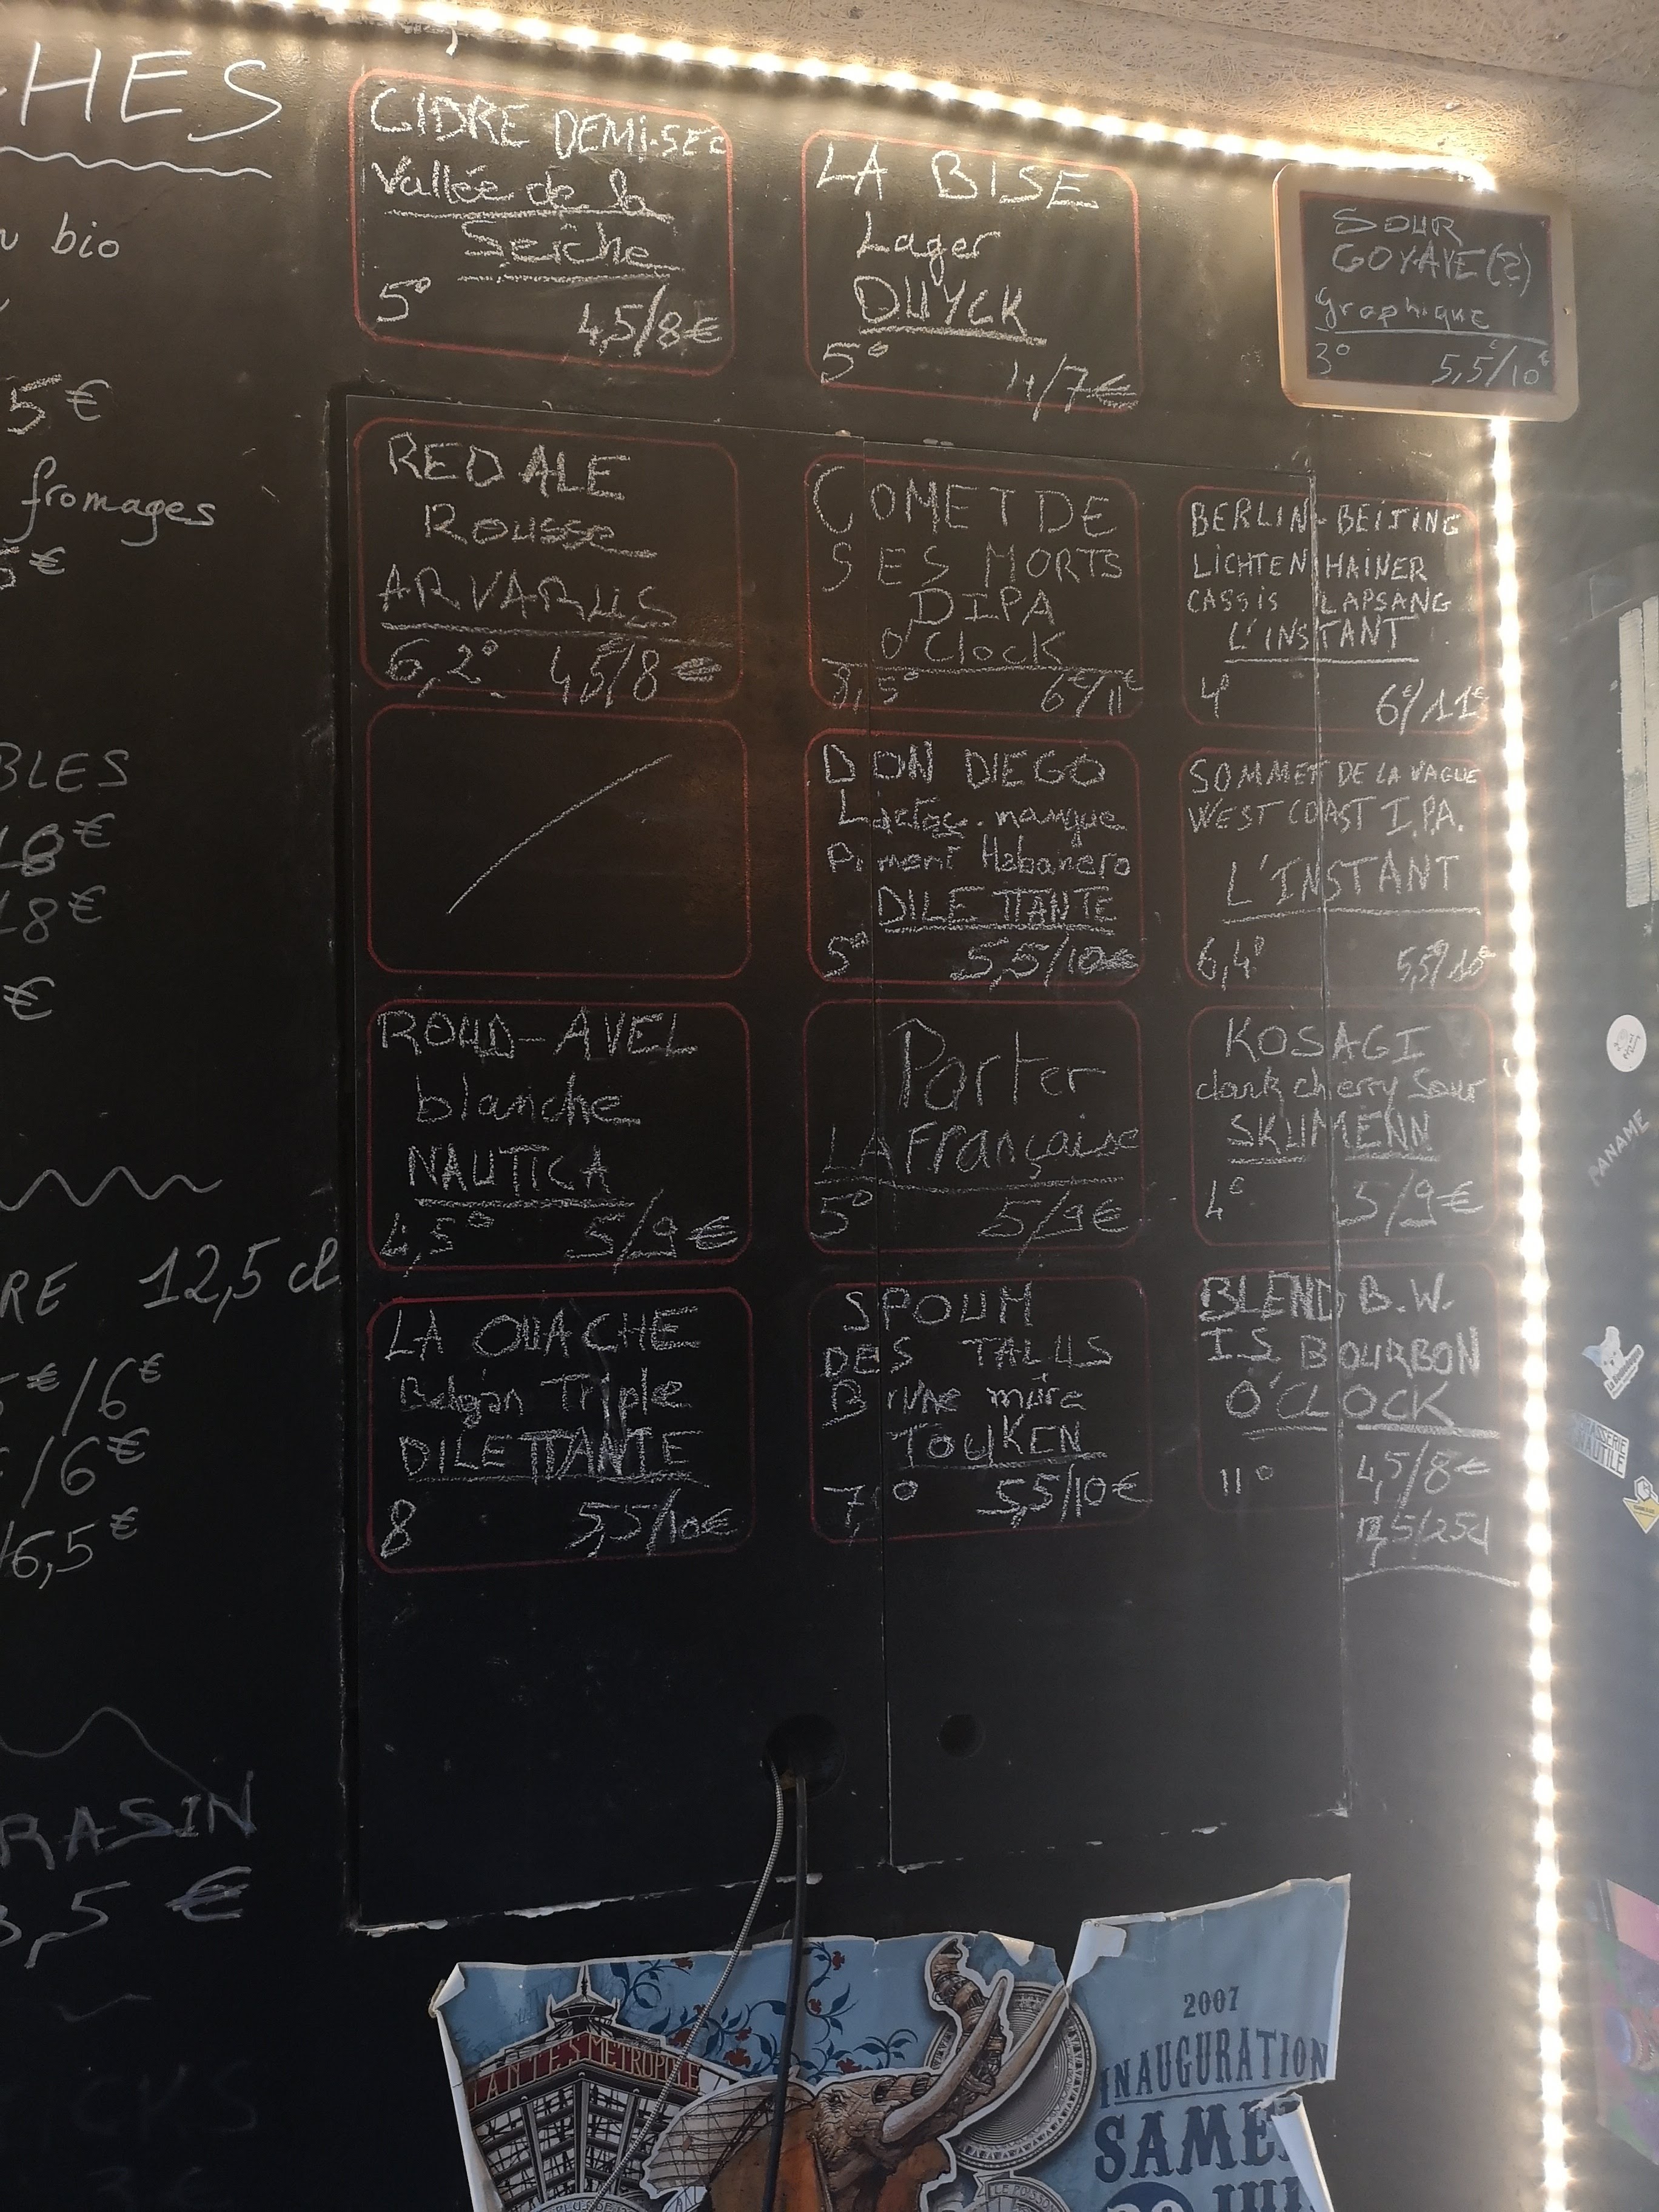 HES
bio
5€
fromages
5€
BLES
18€
18€
€
RE 12,5 cl
5€/6€
€/6€
/6,5€
RASIN
3,5 €
CIDRE DEMI-SEC
Vallée de la
Seiche
5° 4,5/8€
LA BISE
Lager
DUYCK
5° 4/7€
SOUR
GOYAVE(?)
Graphique
3° 5,5/10€
RED ALE
ROUSSE
ARVARUS
6,2° 4,5/8€
COMET DE
SES MORTS
DIPA
O'Clock
8,5° 6€/11€
BERLIN-BEIJING
LICHTENHAINER
CASSIS LAPSANG
L'INSTANT
4° 6€/11€
DON DIEGO
Lactos. mangue
Piment Habanero
DILETTANTE
5° 5,5/10€
SOMMET DE LA VAGUE
WEST COAST I.P.A.
L'INSTANT
6,4° 5,5/10€
ROUD-AVEL
blanche
NAUTICA
4,5° 5/9€
Porter
LA Française
5° 5/9€
KOSAGI
dark cherry Sour
SKUMENN
4° 5/9€
LA OUACHE
Belgian Triple
DILETTANTE
8 5,5/10€
SPOUM
DES TALUS
Brune mûre
TOUKEN
7,° 5,5/10€
BLEND B.W.
I.S BOURBON
O'CLOCK
11° 4,5/8€
12,5/25cl
PANAME
NANTES METROPOLE
2007
INAUGURATION
SAME
JUI